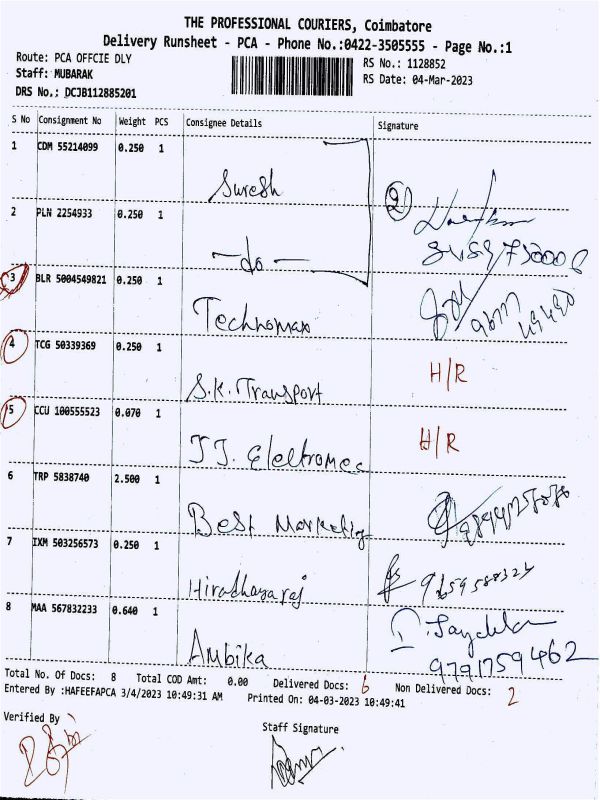 THE PROFESSIONAL COURIERS, Coimbatore
Delivery Runsheet - PCA - Phone No.:0422-3505555 - Page No.:1
Route: PCA OFFCIE DLY
RS No.: 1128852
Staff: MUBARAK
RS Date: 04-Mar-2023
DRS No.: DCJB112885201
S No Consignment No Weight PCS Consignee Details Signature
1 CDM 55214099 0.250 1
Suresh
2
2 PLN 2254933 0.250 1
-do-
3 BLR 5004549821 0.250 1
Technomax
4 TCG 50339369 0.250 1
S.K. Transport H/R
5 CCU 100555523 0.070 1
J.J. Electromec H/R
6 TRP 5838740 2.500 1
Best Marketing
7 IXM 503256573 0.250 1
8 MAA 567832233 0.640 1
Ambika
9791759462
Total No. Of Docs: 8 Total COD Amt: 0.00 Delivered Docs: 6 Non Delivered Docs: 2
Entered By :HAFEEFAPCA 3/4/2023 10:49:31 AM Printed On: 04-03-2023 10:49:41
Verified By
Staff Signature